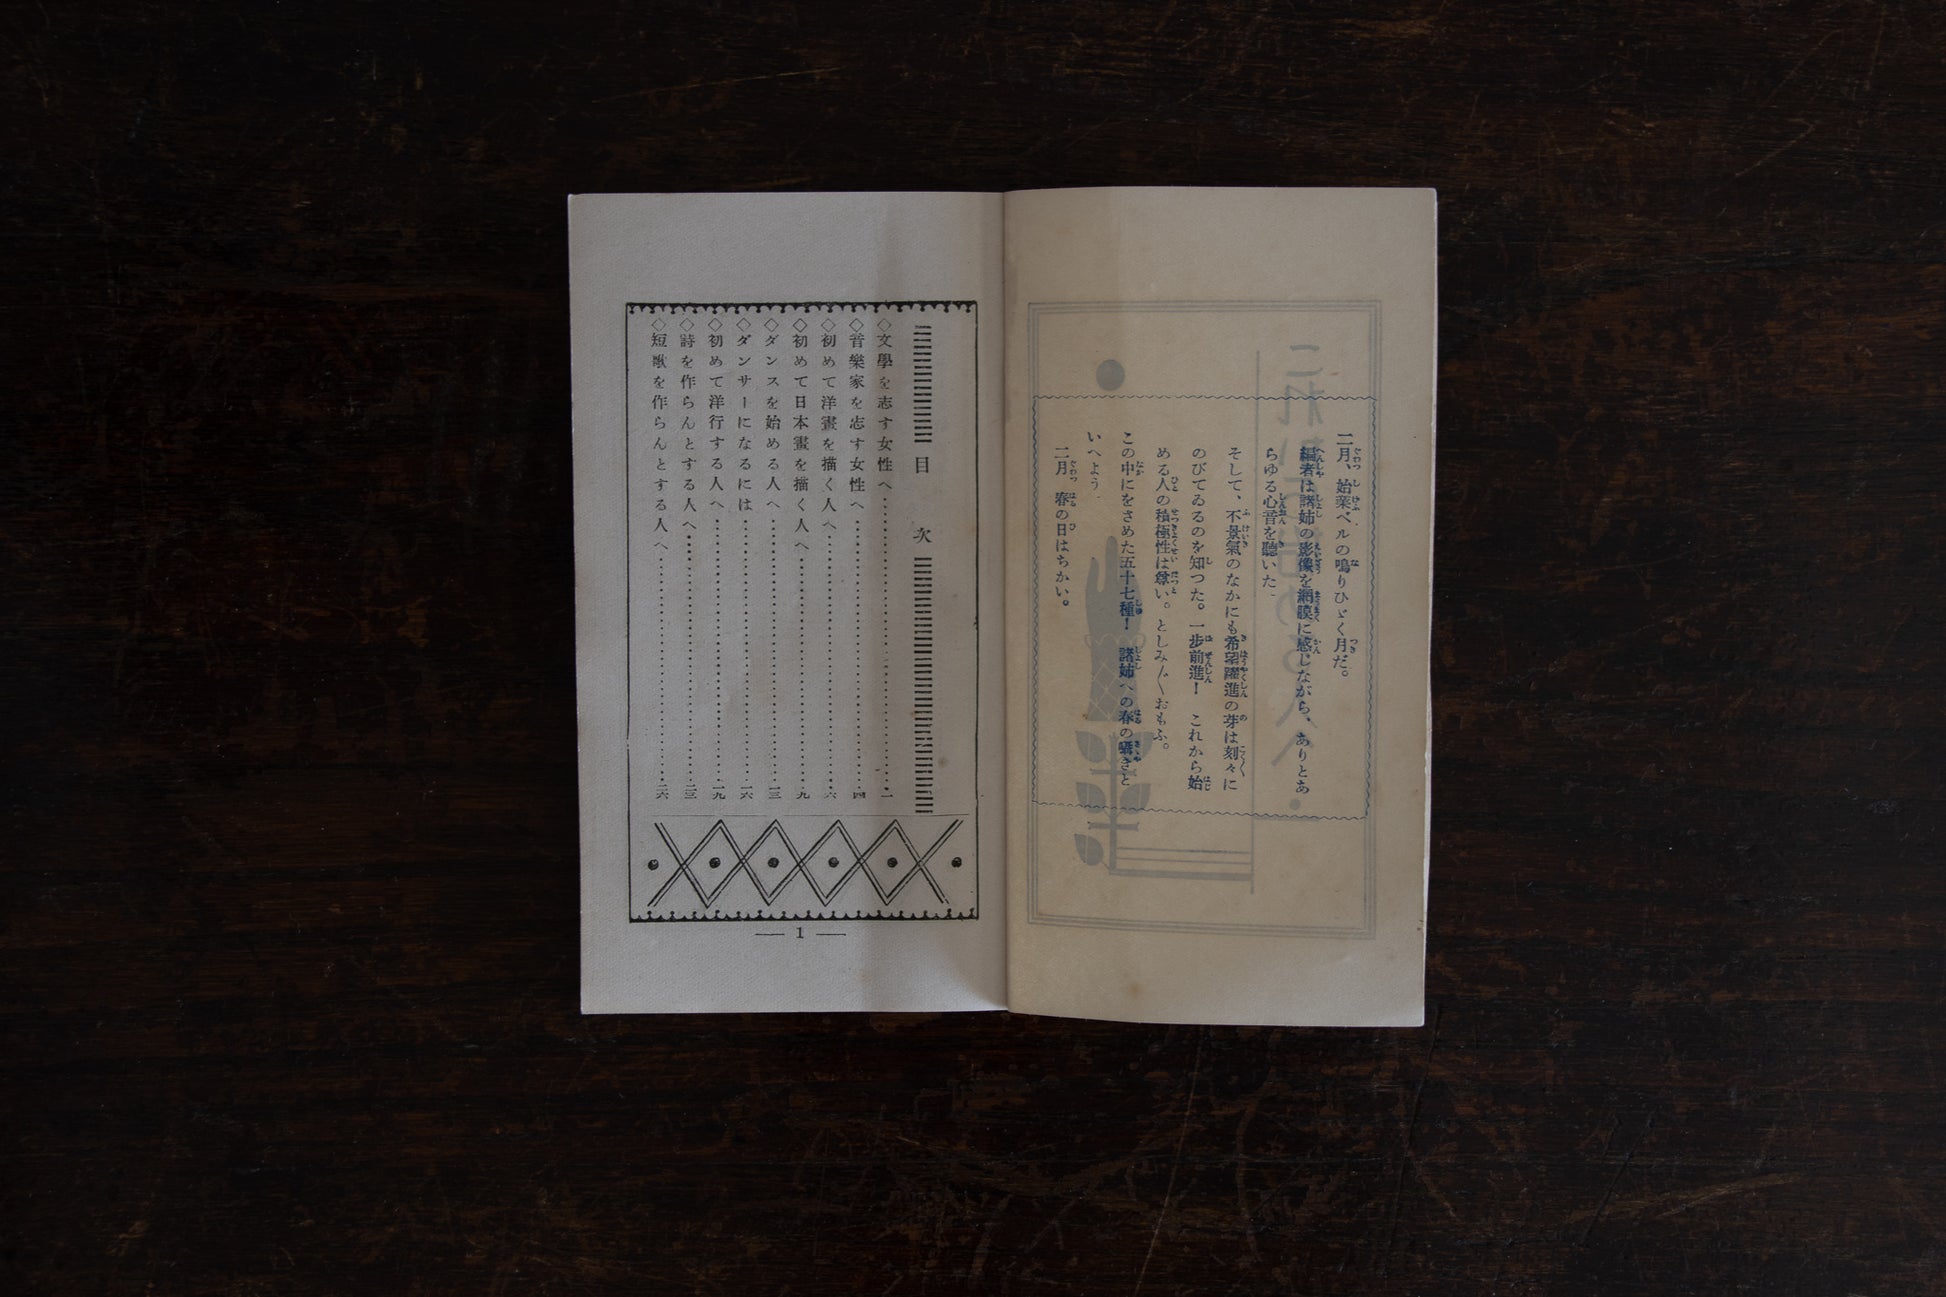 二月、始業ベルの鳴りひゞく月だ。
編者は諸姉の影像を網膜に感じながら、ありとあ
らゆる心音を聽いた。
そして、不景氣のなかにも希望躍進の芽は刻々に
のびてゐるのを知つた。一步前進！　これから始
める人の積極性は尊い。としみ〴〵おもふ。
この中にをさめた五十七種！　諸姉への春の囁きと
いへよう。
二月　春の日はちかい。
目次
◇文學を志す女性へ……一
◇音樂家を志す女性へ……四
◇初めて洋畫を描く人へ……六
◇初めて日本畫を描く人へ……九
◇ダンスを始める人へ……一三
◇ダンサーになるには……一六
◇初めて洋行する人へ……一九
◇詩を作らんとする人へ……二三
◇短歌を作らんとする人へ……二六
— 1 —